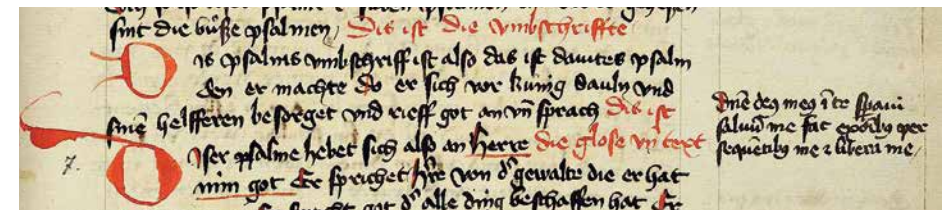 sint die bůße psalmen, Dis ist die vmbschriffte
Dis psalms vmbschriff ist also das ist dauites psalm
den er machte do er sich vor kunig sauln vnd
sinē helfferen besorget vnd rieff got an vn̄ sprach Dis ist
Diser psalme hebet sich also an Herre die glose vn̄ text
min got Er sprichet h̄re von d' gewalte die er hat
got d' alle ding beschaffen hat Er
7.
Dn̄e deꝰ meꝰ ī te spaui
saluū me fac ex oībꝰ per
sequētibꝰ me ⁊ libera me,